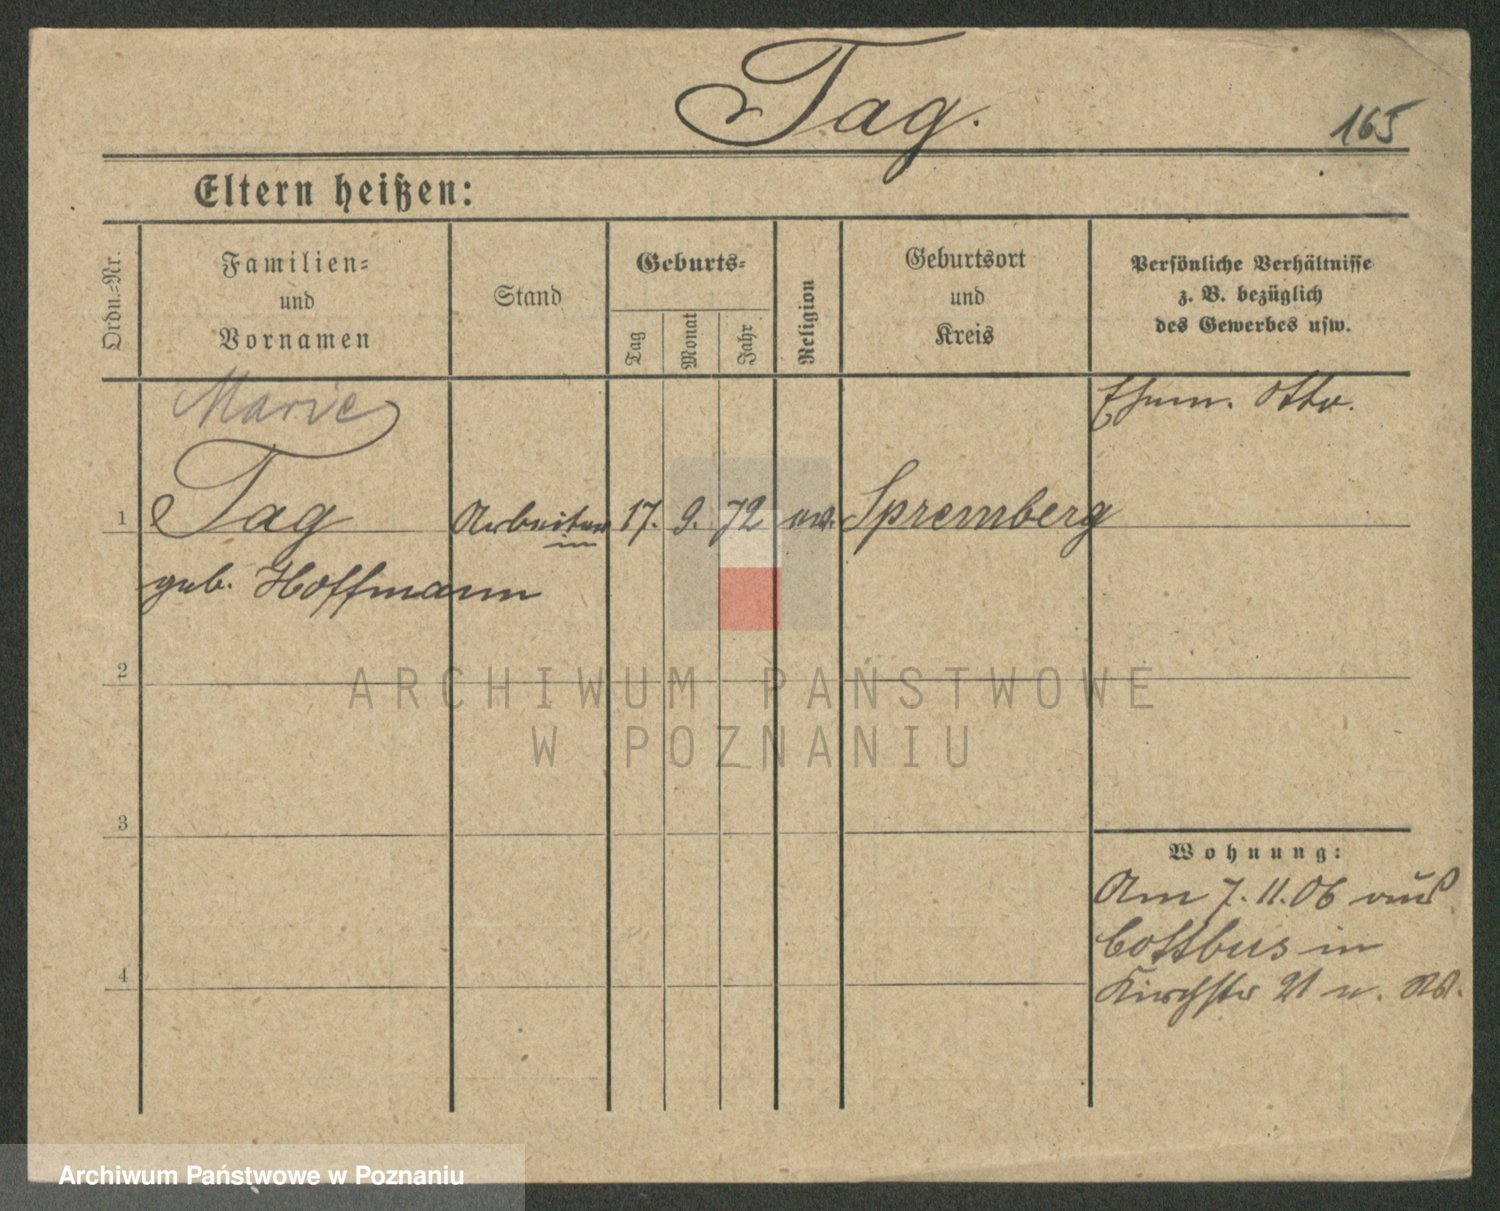 Tag.
165
Eltern heißen:
Ordn.=Nr.
Familien=
und
Vornamen
Stand
Geburts=
Tag
Monat
Jahr
Religion
Geburtsort
und
Kreis
Persönliche Verhältnisse
z. B. bezüglich
des Gewerbes usw.
Marie
Ehem. Otto.
1 Tag Arbeiter 17. 9. 72 ev. Spremberg
in
geb. Hoffmann
2
ARCHIWUM PAŃSTWOWE
W POZNANIU
3
Wohnung:
Am 7.11.06 aus
Cottbus in
4
Kirchstr 21 u.
Archiwum Państwowe w Poznaniu